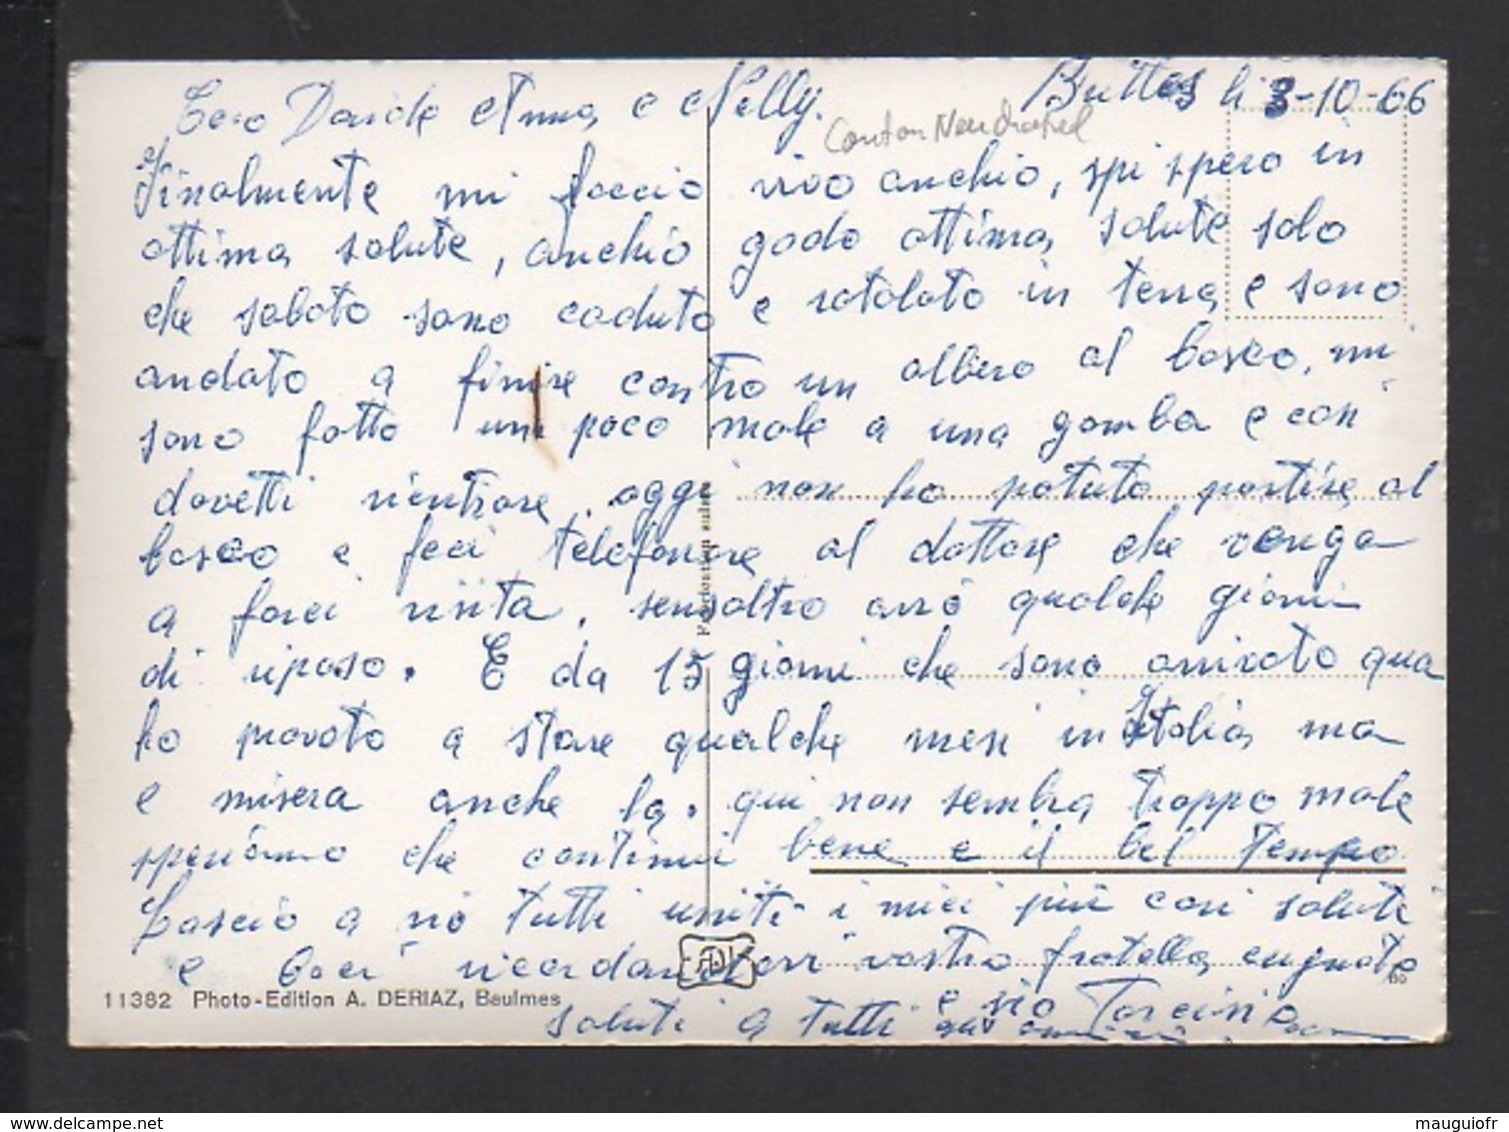 Buttes li 3-10-66
Caro Davide Anna e Nelly.
Canton Neuchatel
Finalmente mi faccio vivo anchio, spi spero in
ottima salute, anchio godo ottima salute solo
che sabato sono caduto e rotolato in terra e sono
andato a finire contro un albero al bosco, mi
sono fatto un poco male a una gamba e cosi
dovetti rientrare. oggi non ho potuto partire al
bosco e feci telefonare al dottore che venga
a farci visita, sensaltro avrò qualche giorni
di riposo. E da 15 giorni che sono arrivato qua
ho provato a stare qualche mesi in Italia ma
e misera anche la. qui non sembra troppo male
speriamo che continui bene e il bel tempo
Lascio a voi tutti uniti i miei più cari saluti
e baci ricordandovi vostro fratello cugnato
e zio
saluti a tutti
11382 Photo-Edition A. DERIAZ, Baulmes
mauguiofr